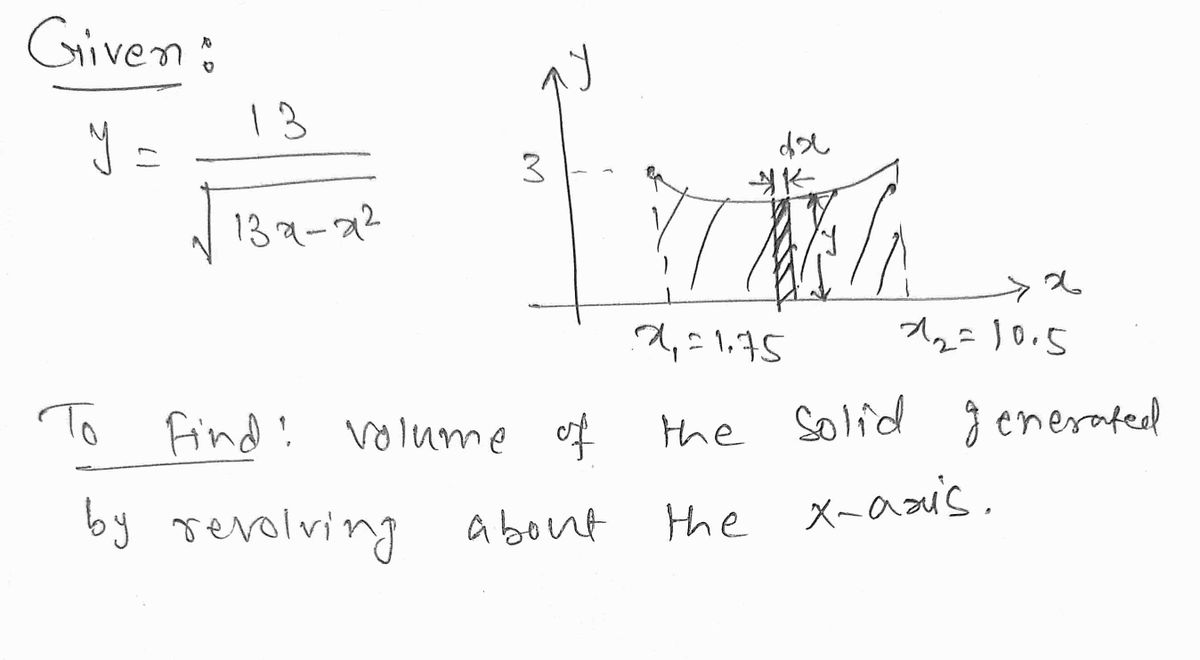 Given:
y = 13 / √(13x-x²)
y
3
dx
y
x
x₁=1.75
x₂=10.5
To Find: volume of the solid generated
by revolving about the x-axis.